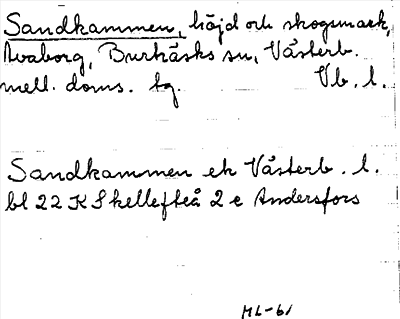 Sandkammen, höjd och skogsmark,
Avaborg, Burträsks sn, Västerb.
mell. doms. tg. Vb. l.
Sandkammen ek Västerb. l.
bl 22 K Skellefteå 2 e Andersfors
ML-61